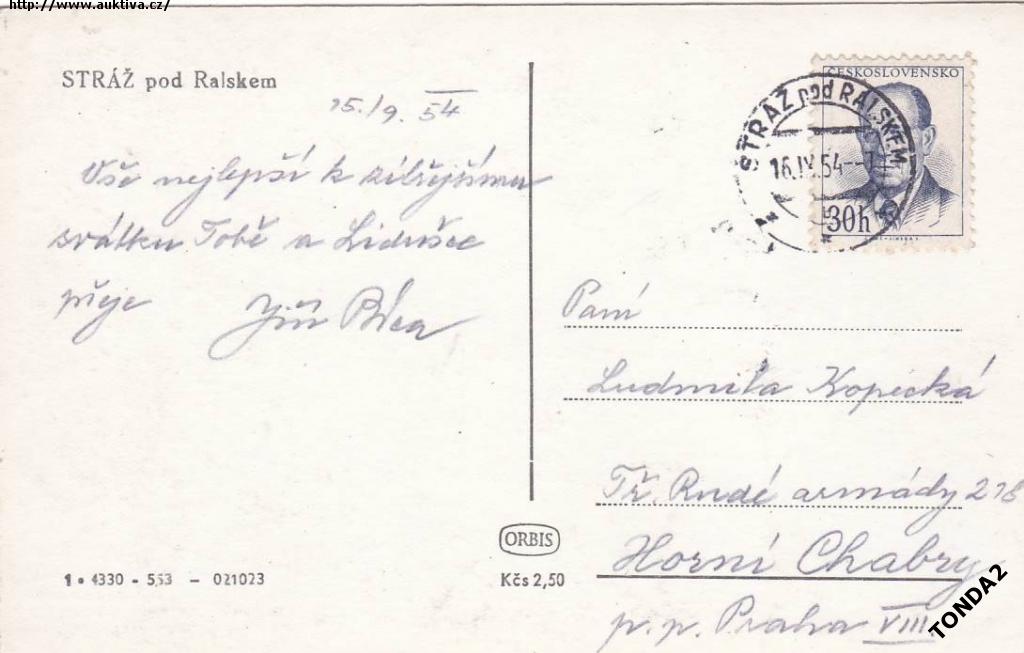 http://www.auktiva.cz/
STRÁŽ pod Ralskem
15./9. 54
Vše nejlepší k zítřejšímu
svátku Tobě a Lidušce
přeje Jiří
ČESKOSLOVENSKO
30h
STRÁŽ pod RALSKEM
16.IX.54
Paní
Ludmila Kopecká
Tř. Rudé armády 218
Horní Chabry
p.p. Praha VIII.
ORBIS
Kčs 2,50
1 • 4330 - 5,53 - 021023
TONDA2